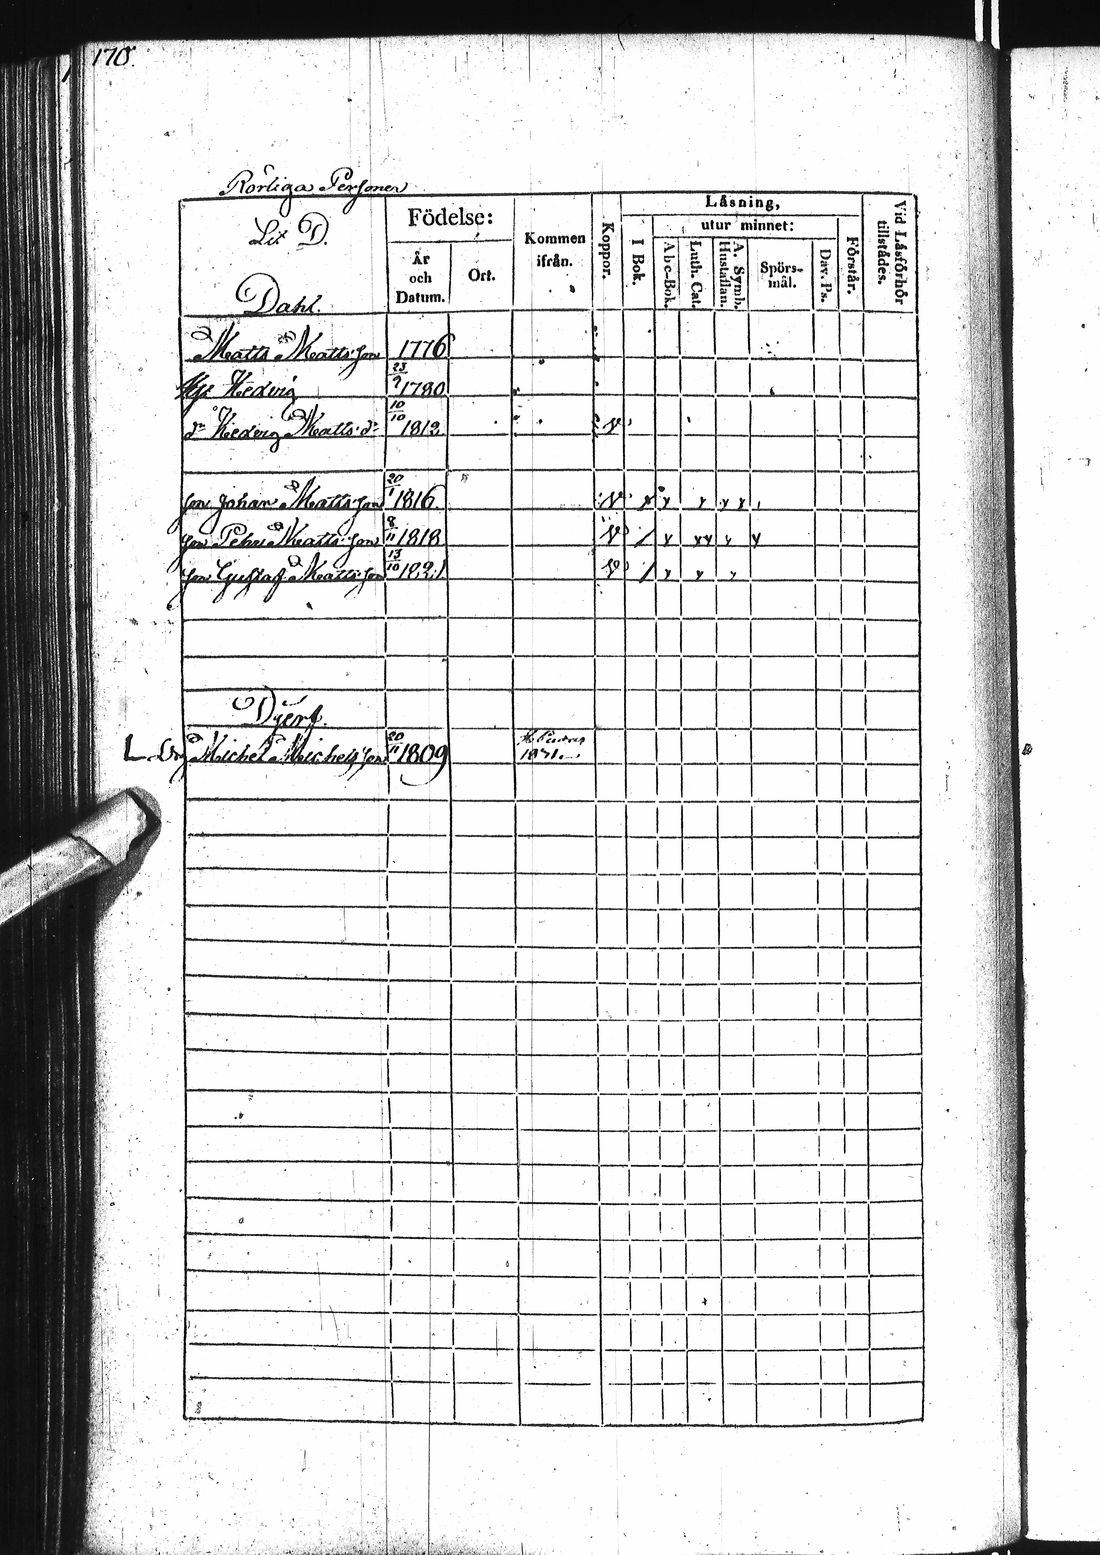 170.
Rörliga Personer
Lit D.
Födelse:
År och Datum.
Ort.
Kommen ifrån.
Koppor.
Läsning,
I Bok.
utur minnet:
Abc-Bok.
Luth. Cat.
A. Symb. Hustaflan.
Spörsmål.
Dav. Ps.
Förstår.
Vid Läsförhör tillstädes.
Dahl.
Matts Mattsson 1776
Hedvig 23/9 1780
dr Hedvig Matts dr 10/10 1812 V
son Johan Mattsson 20/1 1816 V
son Pehr Mattsson 8/11 1818 V
son Gustaf Mattsson 13/10 1821 V
Djerf.
Michel Michelsson 20/11 1809 1831.